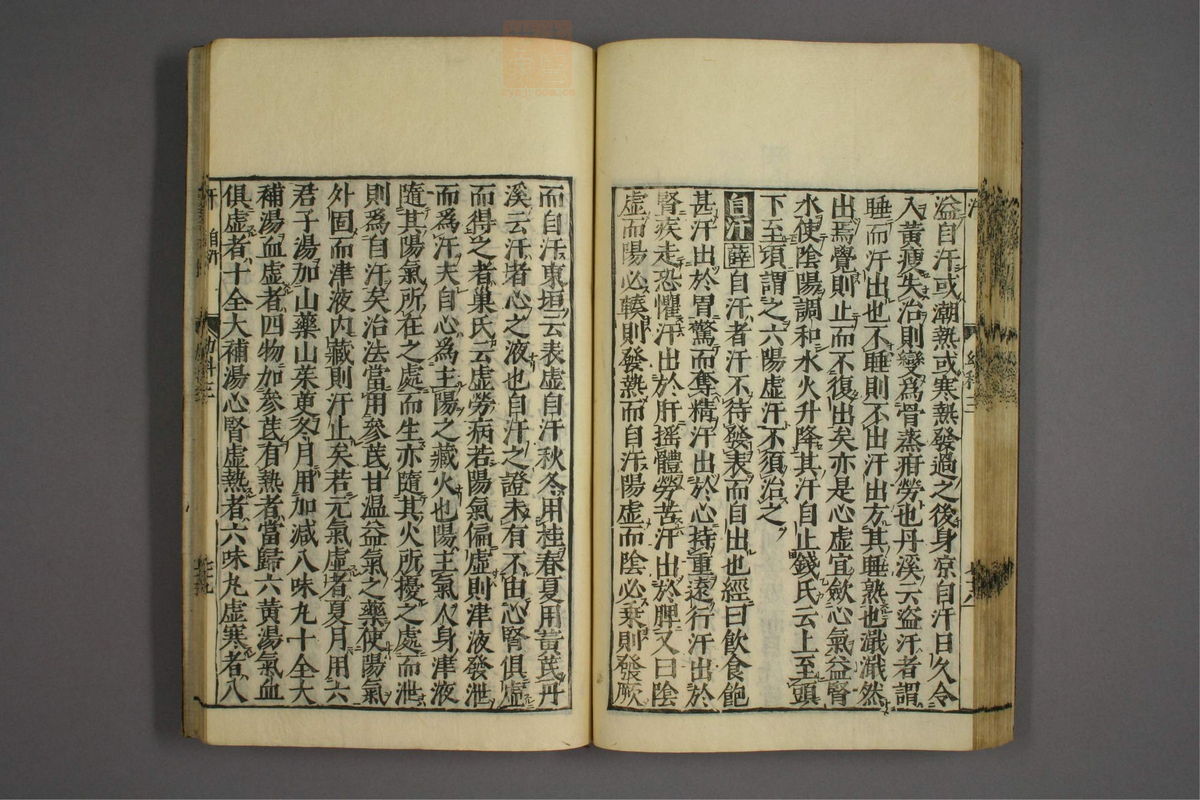 溢自汗或潮熱或寒熱發過之後身凉自汗日久令
入黃瘦失治則變爲骨蒸疳勞也丹溪云盜汗者謂
睡而汗出也不睡則不出汗出方其睡熟也濈濈然
出焉覺則止而不復出矣亦是心虛宜歛心氣益腎
水使陰陽調和水火升降其汗自止錢氏云上至頭
下至項謂之六陽虛汗不須治之
自汗 薛 自汗者汗不待發表而自出也經曰飮食飽
甚汗出於胃驚而奪精汗出於心持重遠行汗出於
腎疾走恐懼汗出於肝揺體勞苦汗出於脾又曰陰
虛而陽必轃則發熱而自汗陽虛而陰必乗則發厥
而自汗東垣云表虛自汗秋冬用桂春夏用黃芪丹
溪云汗者心之液也自汗之證未有不由心腎俱虛
而得之者巢氏云虛勞病若陽氣偏虛則津液發泄
而爲汗夫自心爲主陽之藏火也陽主氣人身津液
隨其陽氣所在之處而生亦隨其火所擾之處而泄
則爲自汗矣治法當用參芪甘温益氣之藥使陽氣
外固而津液內藏則汗止矣若元氣虛者夏月用六
君子湯加山藥山茱萸冬月用加减八味丸十全大
補湯血虛者四物加參芪有熱者當歸六黃湯氣血
俱虛者十全大補湯心腎虛熱者六味丸虛寒者八
汗 自汗